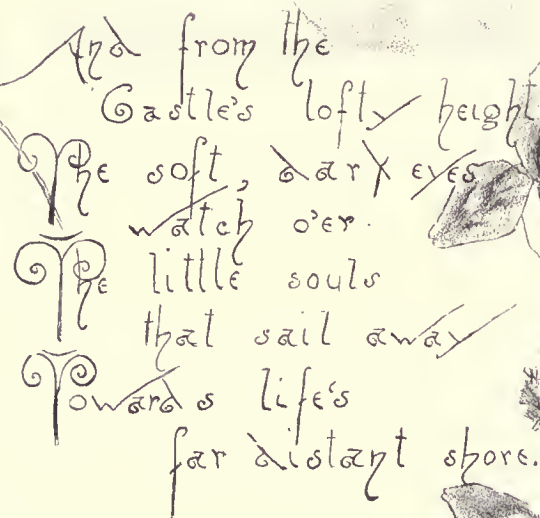 And from the
Castle's lofty height
The soft, dark eyes
watch o'er.
The little souls
that sail away
Towards life's
far distant shore.